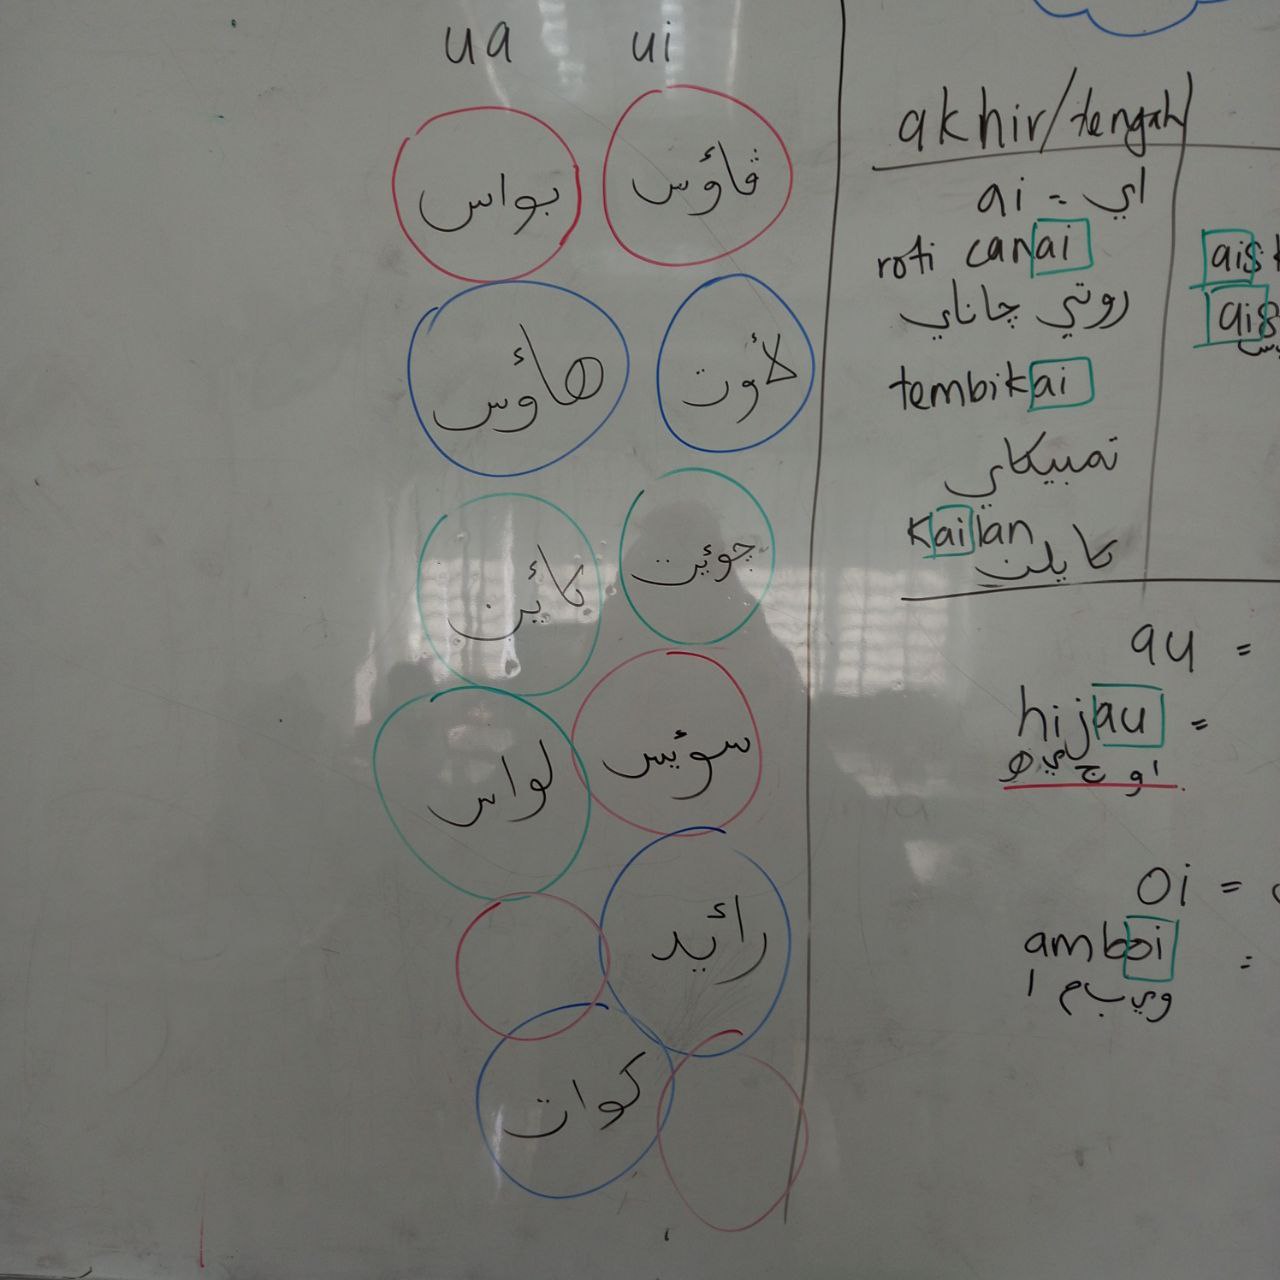 ua ui
بواس ڤاؤس
هأوس لأوت
كأين جوئيت
لواس سوئيس
رائيد
كوات
akhir/tengah
ai = اي
roti canai
روتي چاناي
tembikai
تمبيكاي
kailan كايلن
ais
ais
au =
hijau =
oi =
amboi =